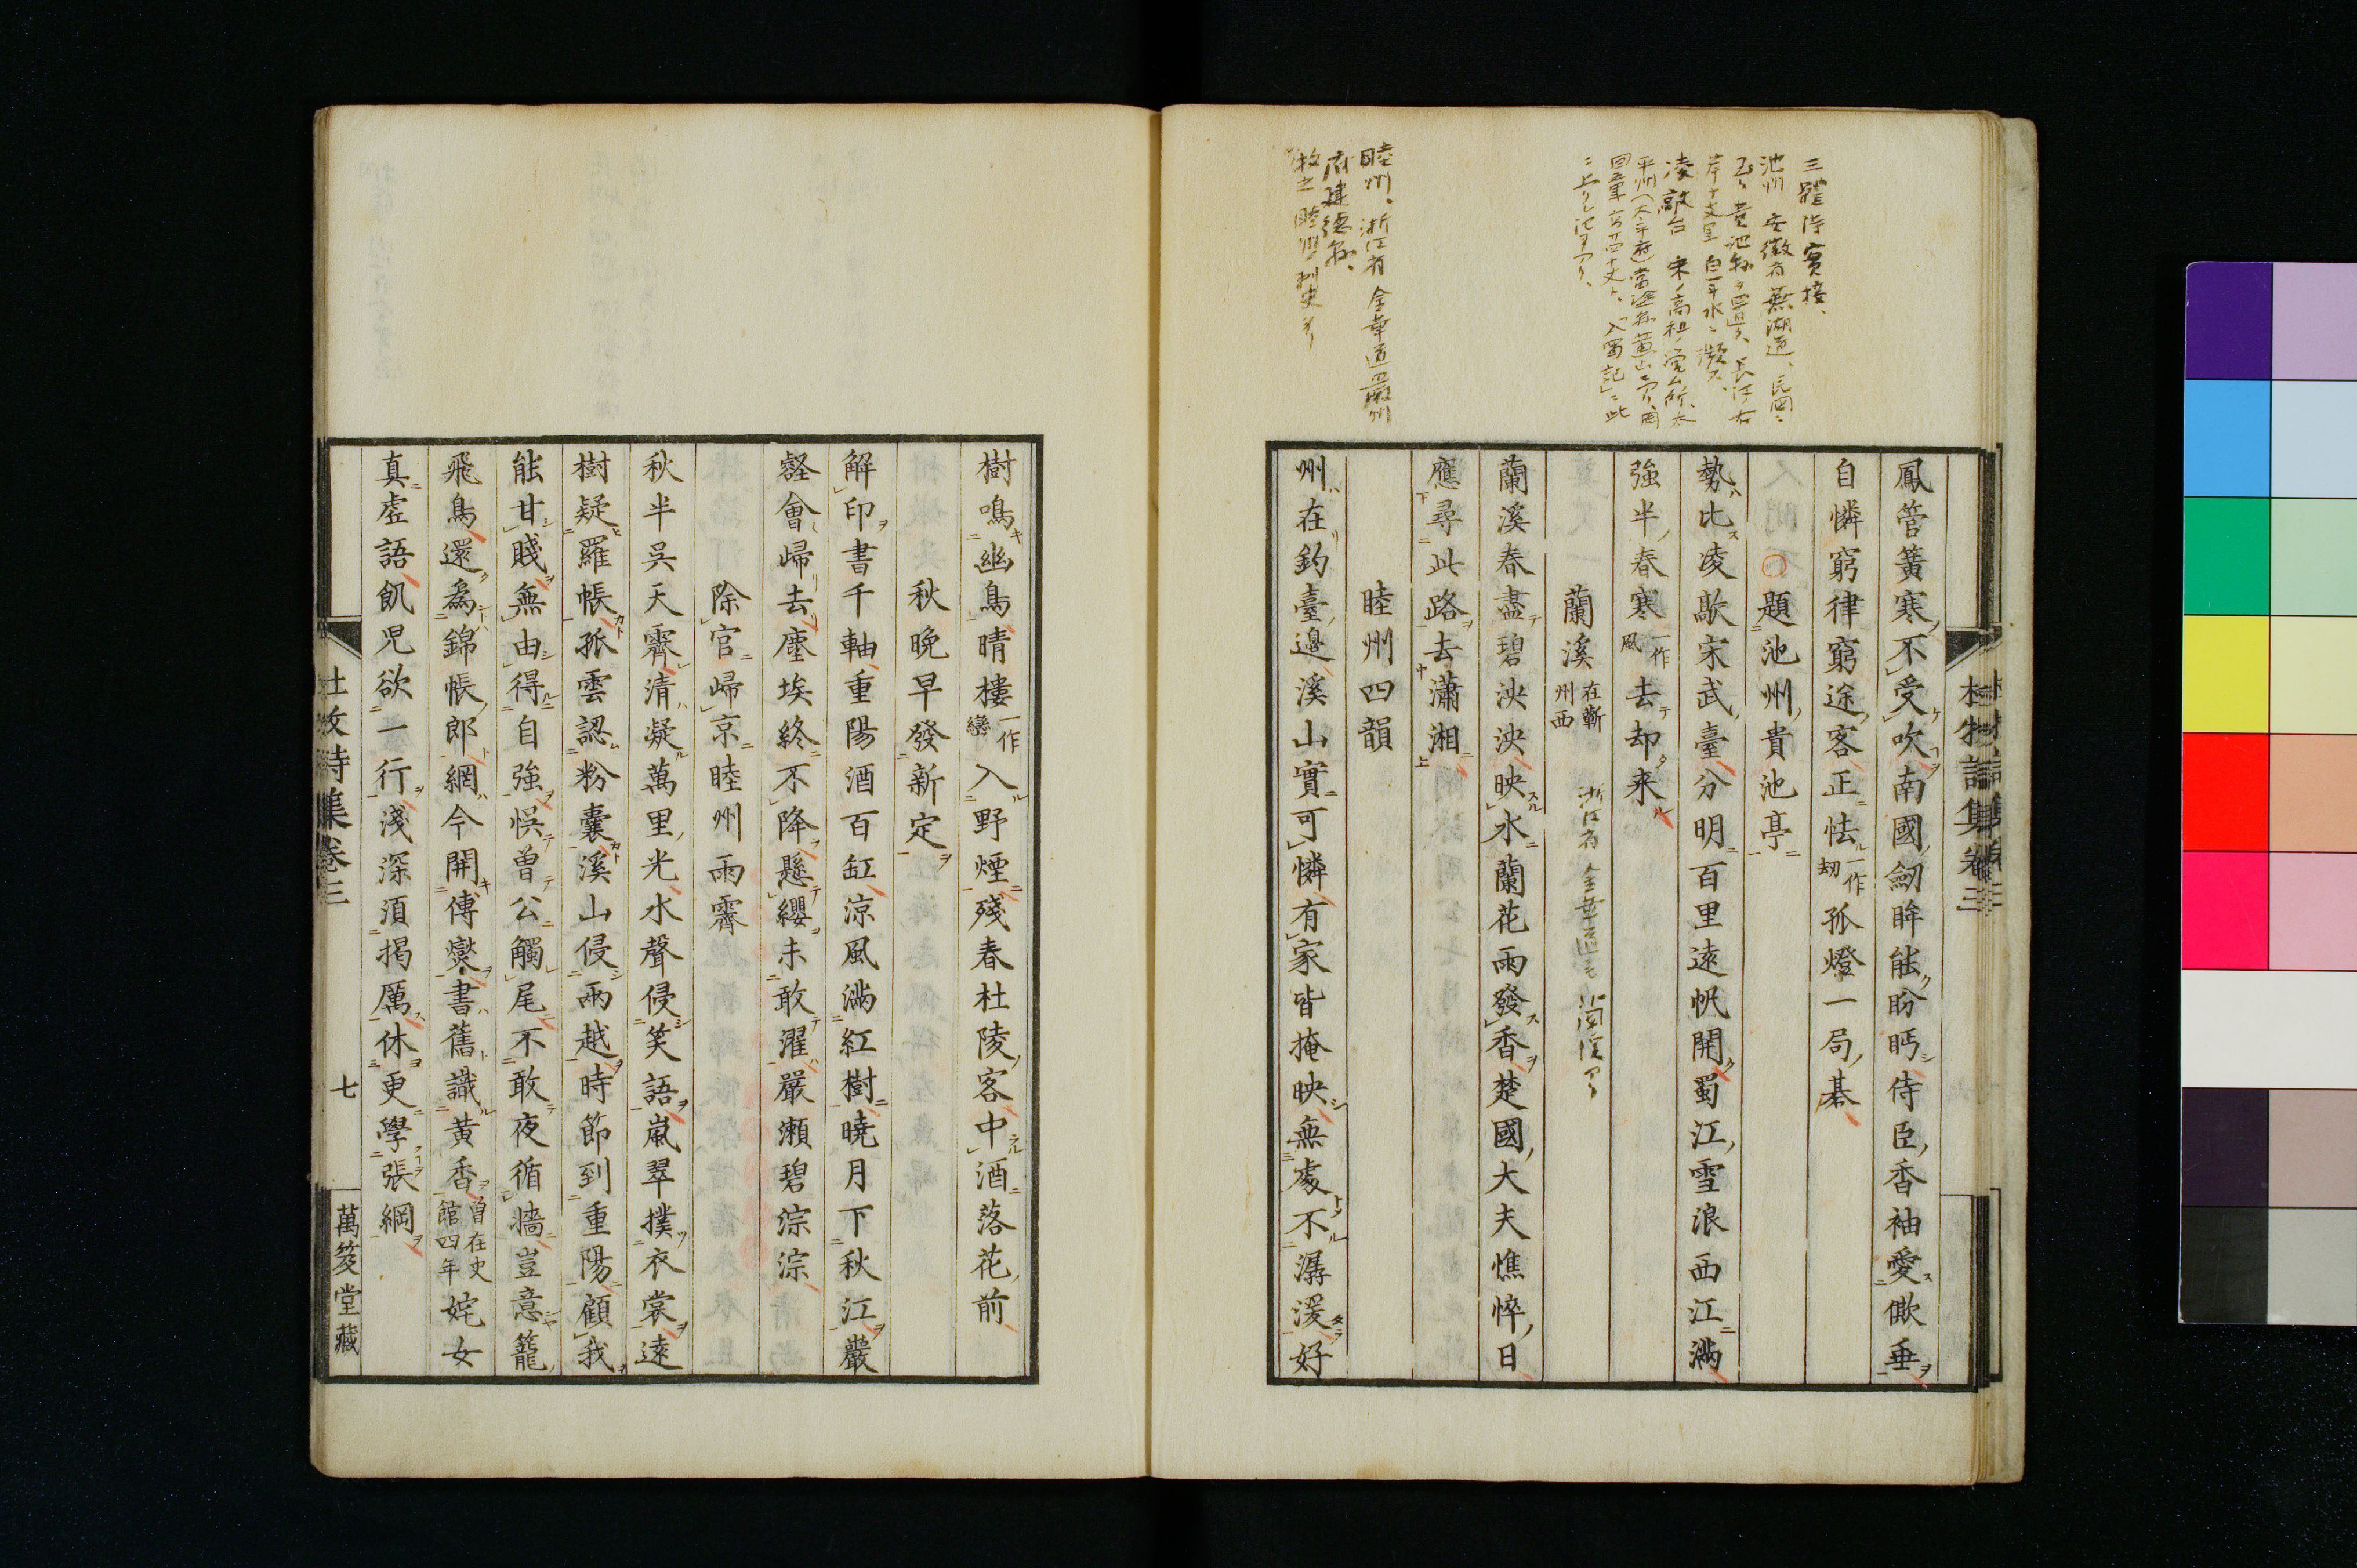 三體詩實接、
池州 安徽省蕪湖道、民国ニ
至リ貴池縣
凌歊台 宋ノ高祖ノ
睦州、浙江省金華道嚴州
府建德縣、
牧之睦州刺史
鳳管簧寒不受吹南國劒眸能盼眄侍臣香袖愛僛垂
自憐窮律窮途客正怯一作刼孤燈一局棊
題池州貴池亭
勢比凌歊宋武臺分明百里遠帆開蜀江雪浪西江滿
強半春寒一作風去却来
蘭溪在蘄州西
浙江省金華道ニモ蘭溪アリ
蘭溪春盡碧泱泱映水蘭花雨發香楚國大夫憔悴日
應尋此路去瀟湘
睦州四韻
州在釣臺邊溪山實可憐有家皆掩映無處不潺湲好
樹鳴幽鳥晴樓一作巒入野煙殘春杜陵客中酒落花前
秋晚早發新定
解印書千軸重陽酒百缸涼風滿紅樹曉月下秋江巖
壑會歸去塵埃終不降懸纓未敢濯嚴瀬碧淙淙
除官歸京睦州雨霽
秋半吳天霽清凝萬里光水聲侵笑語嵐翠撲衣裳遠
樹疑羅帳孤雲認粉囊溪山侵兩越時節到重陽顧我
能甘賤無由得自強悞曾公觸尾不敢夜循墻豈意籠
飛鳥還為錦帳郎網今開傅燮書舊識黃香曾在史館四年姹女
真虛語飢児欲一行淺深須揭厲休更學張綱
杜牧詩集卷三
七
萬笈堂藏